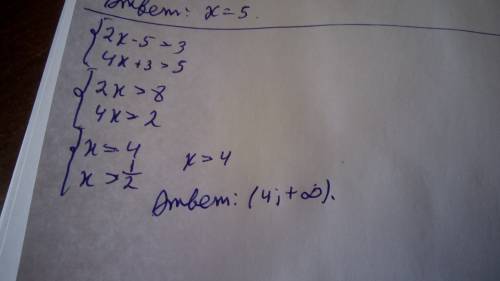 Ответ: x=5.
{2x-5>3
4x+3>5
{2x>8
4x>2
{x>4
x>1/2 x>4
Ответ: (4;+∞).